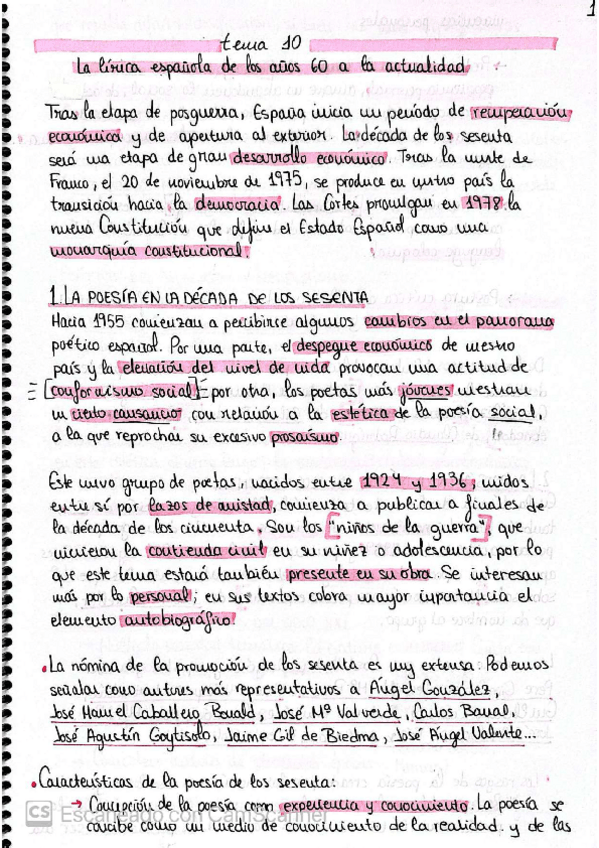 1
tema 10
La lírica española de los años 60 a la actualidad
Tras la etapa de posguerra, España inicia un período de recuperación
económica y de apertura al exterior. La década de los sesenta
será una etapa de gran desarrollo económico. Tras la muerte de
Franco, el 20 de noviembre de 1975, se produce en nuestro país la
transición hacia la democracia. Las Cortes promulgan en 1978 la
nueva Constitución que define el Estado Español como una
monarquía constitucional.
1. LA POESÍA EN LA DÉCADA DE LOS SESENTA
Hacia 1955 comienzan a percibirse algunos cambios en el panorama
poético español. Por una parte, el despegue económico de nuestro
país y la elevación del nivel de vida provocan una actitud de
[conformismo social]; por otra, los poetas más jóvenes muestran
un cierto cansancio con relación a la estética de la poesía social,
a la que reprochan su excesivo prosaísmo.
Este nuevo grupo de poetas, nacidos entre 1924 y 1936, unidos
entre sí por lazos de amistad, comienza a publicar a finales de
la década de los cincuenta. Son los ["niños de la guerra"], que
vivieron la contienda civil en su niñez o adolescencia, por lo
que este tema estará también presente en su obra. Se interesan
más por lo personal; en sus textos cobra mayor importancia el
elemento autobiográfico.
• La nómina de la promoción de los sesenta es muy extensa. Podemos
señalar como autores más representativos a Ángel González,
José Manuel Caballero Bonald, José Mª Valverde, Carlos Barral,
José Agustín Goytisolo, Jaime Gil de Biedma, José Ángel Valente...
• Características de la poesía de los sesenta:
→ Concepción de la poesía como experiencia y conocimiento. La poesía se
CS Escaneado con CamScanner
concibe como un medio de conocimiento de la realidad y de las